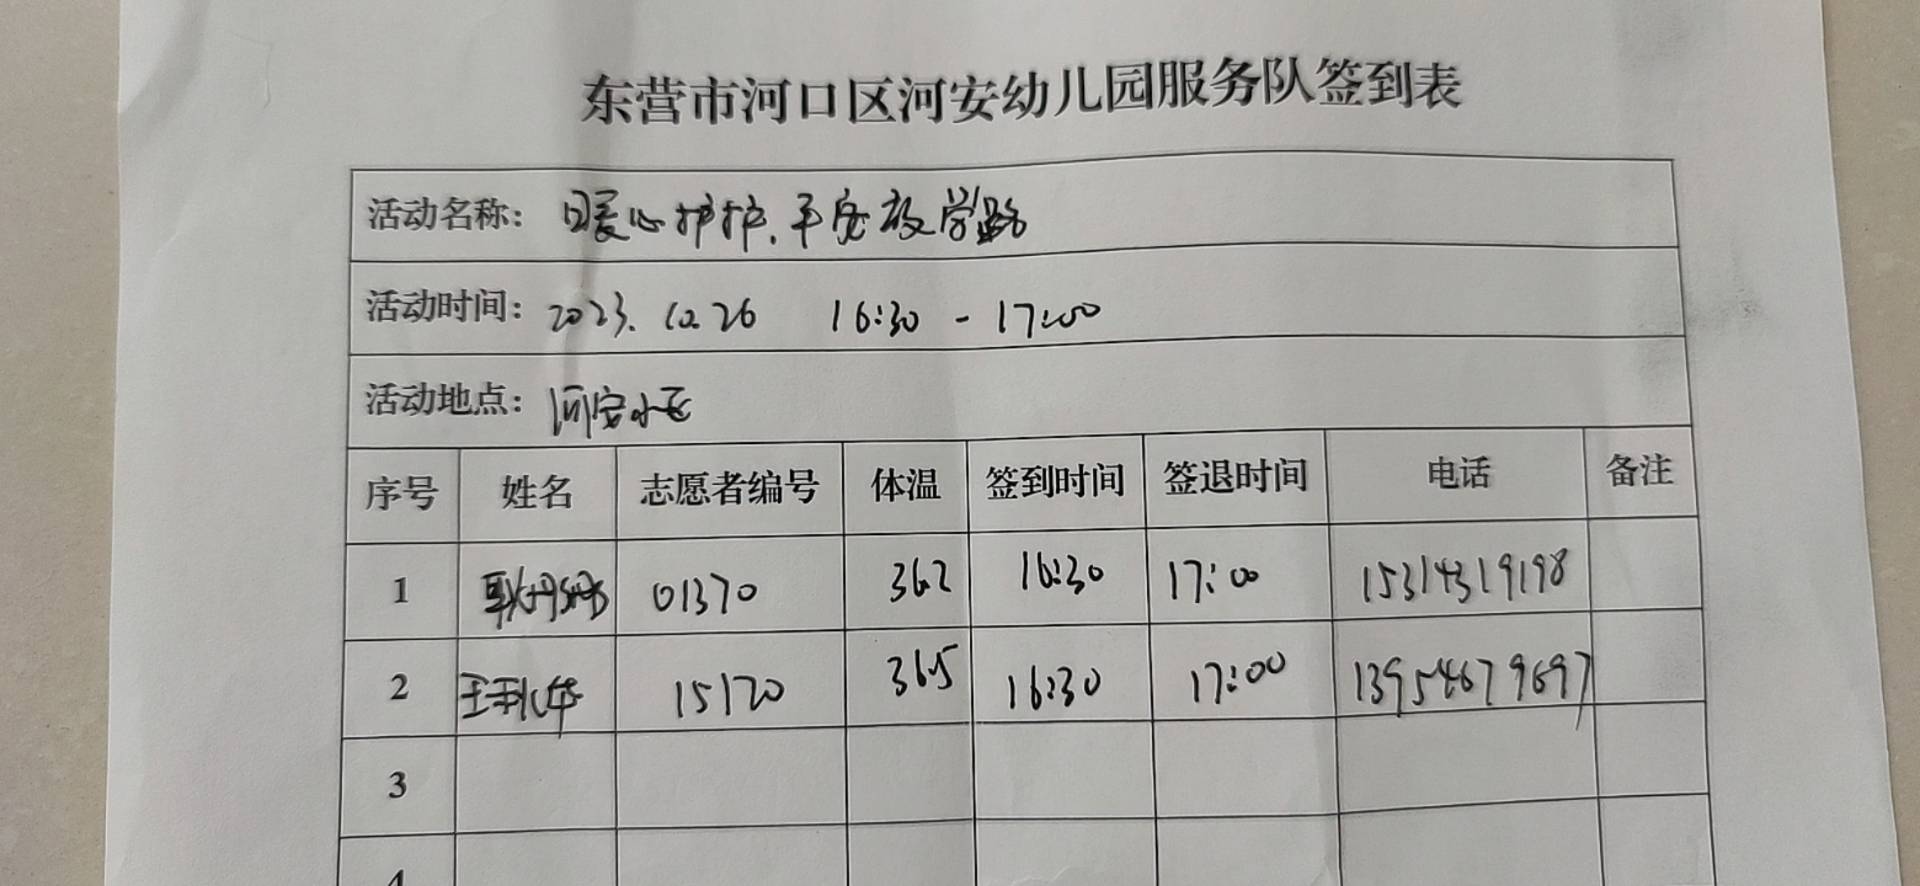 东营市河口区河安幼儿园服务队签到表
活动名称： 暖心护护，平安放学路
活动时间： 2023.10.26 16:30 - 17:00
活动地点： 河安小区
序号 姓名 志愿者编号 体温 签到时间 签退时间 电话 备注
1 耿丹 01370 36.2 16:30 17:00 15314319198
2 王秋华 15170 36.5 16:30 17:00 13954679697
3
4